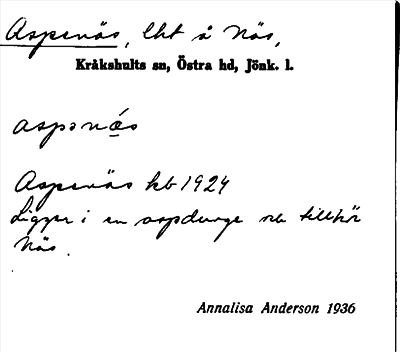 Aspenäs, lht å Näs,
Kråkshults sn, Östra hd, Jönk. l.
aspənä́s
Aspenäs kb 1924
Ligger i en aspdunge och tillhör
Näs.
Annalisa Anderson 1936